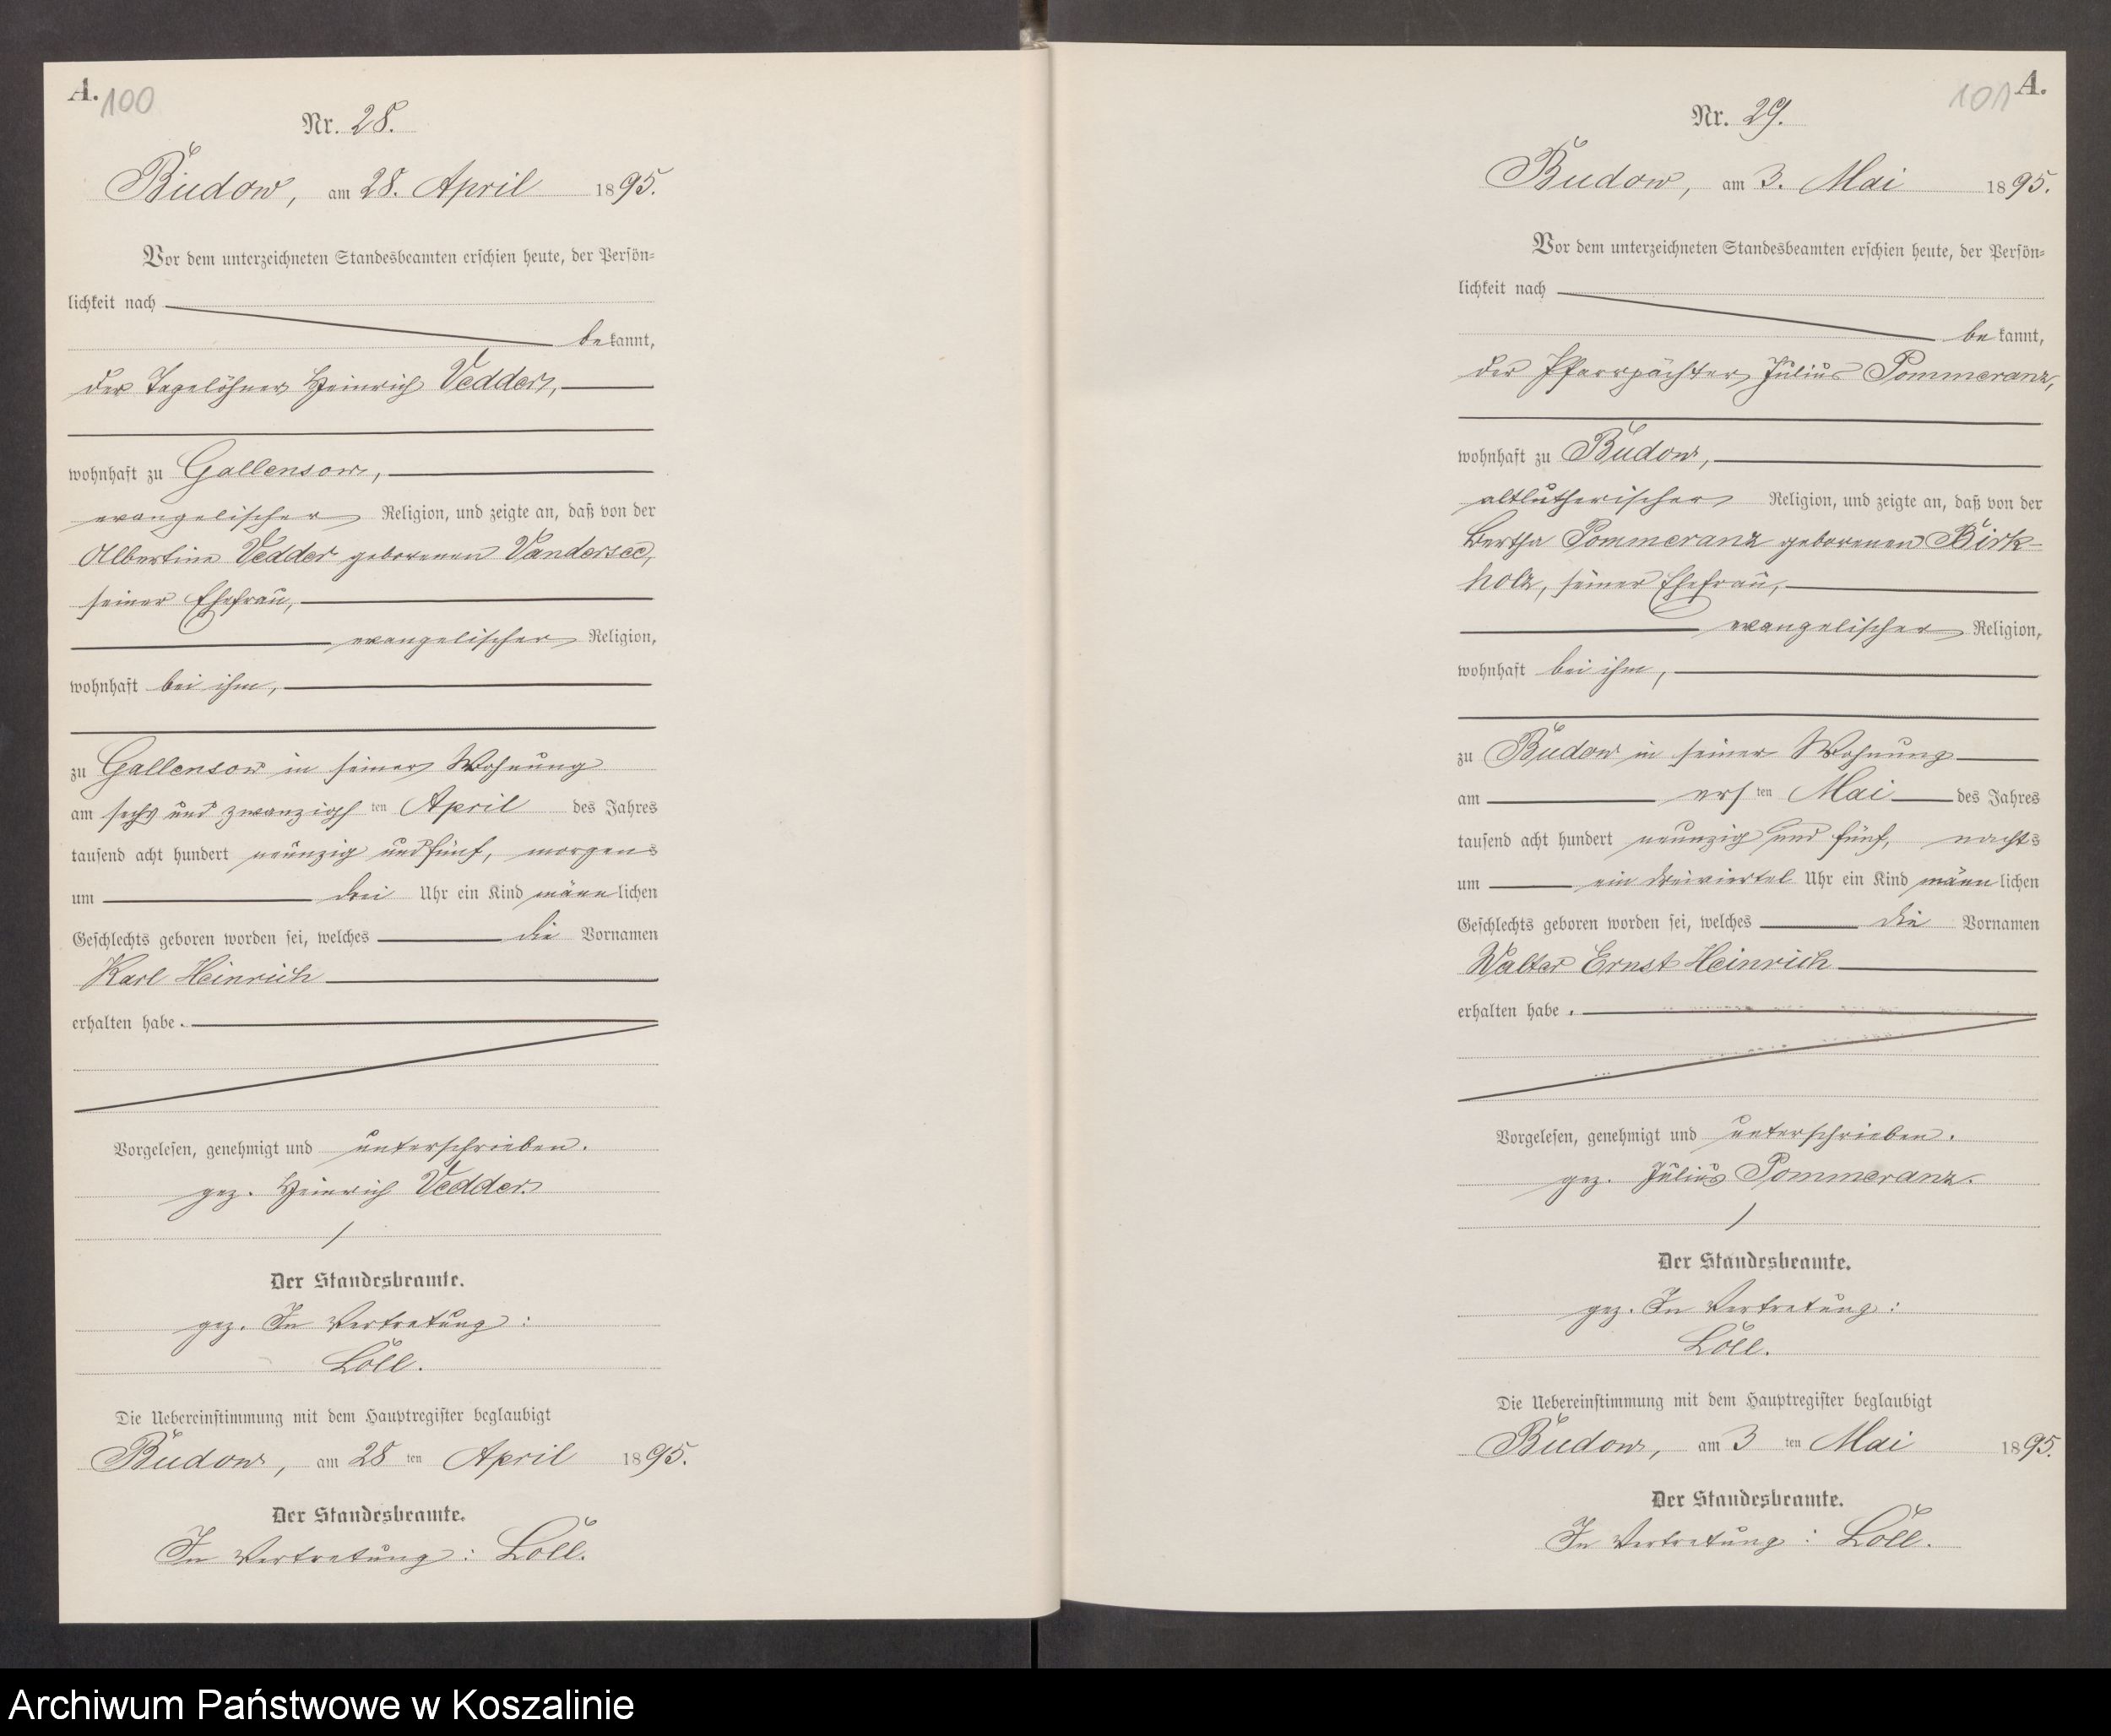 A. 100
Nr. 28.
Budow, am 28. April 1895.
Vor dem unterzeichneten Standesbeamten erschien heute, der Persön-
lichkeit nach
bekannt,
der Tagelöhner Heinrich Vedder,
wohnhaft zu Gallensow,
evangelischer Religion, und zeigte an, daß von der
Albertine Vedder geborenen Vandersee,
seiner Ehefrau,
evangelischer Religion,
wohnhaft bei ihm,
zu Gallensow in seiner Wohnung
am sechs und zwanzigsten April des Jahres
tausend acht hundert neunzig und fünf, morgens
um drei Uhr ein Kind männlichen
Geschlechts geboren worden sei, welches die Vornamen
Karl Heinrich
erhalten habe.
Vorgelesen, genehmigt und unterschrieben.
gez. Heinrich Vedder.
Der Standesbeamte.
gez. In Vertretung:
Löll.
Die Uebereinstimmung mit dem Hauptregister beglaubigt
Budow, am 28 ten April 1895.
Der Standesbeamte.
In Vertretung: Löll.
101 A.
Nr. 29.
Budow, am 3. Mai 1895.
Vor dem unterzeichneten Standesbeamten erschien heute, der Persön-
lichkeit nach
bekannt,
der Pfarrpächter Julius Pommeranz,
wohnhaft zu Budow,
altlutherischer Religion, und zeigte an, daß von der
Bertha Pommeranz geborenen Birk-
holz, seiner Ehefrau,
evangelischer Religion,
wohnhaft bei ihm,
zu Budow in seiner Wohnung
am ersten Mai des Jahres
tausend acht hundert neunzig und fünf, nachts
um ein dreiviertel Uhr ein Kind männlichen
Geschlechts geboren worden sei, welches die Vornamen
Walter Ernst Heinrich
erhalten habe.
Vorgelesen, genehmigt und unterschrieben.
gez. Julius Pommeranz.
Der Standesbeamte.
gez. In Vertretung:
Löll.
Die Uebereinstimmung mit dem Hauptregister beglaubigt
Budow, am 3 ten Mai 1895.
Der Standesbeamte.
In Vertretung: Löll.
Archiwum Państwowe w Koszalinie